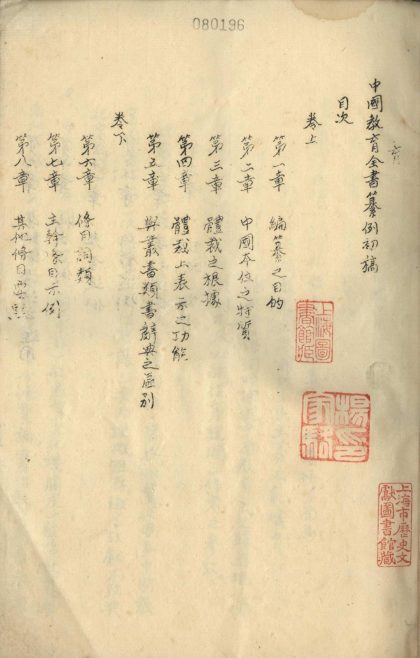 080196
中國教育全書纂例初稿
目次
卷上
第一章 編纂之目的
第二章 中國本位之特質
第三章 體裁之根據
第四章 體裁上表示之功能
第五章 與叢書類書辭典之區別
卷下
第六章 條目調類
第七章 主幹條目示例
第八章 其他條目
上海圖書館藏
楊家駱印
上海市歷史文獻圖書館藏